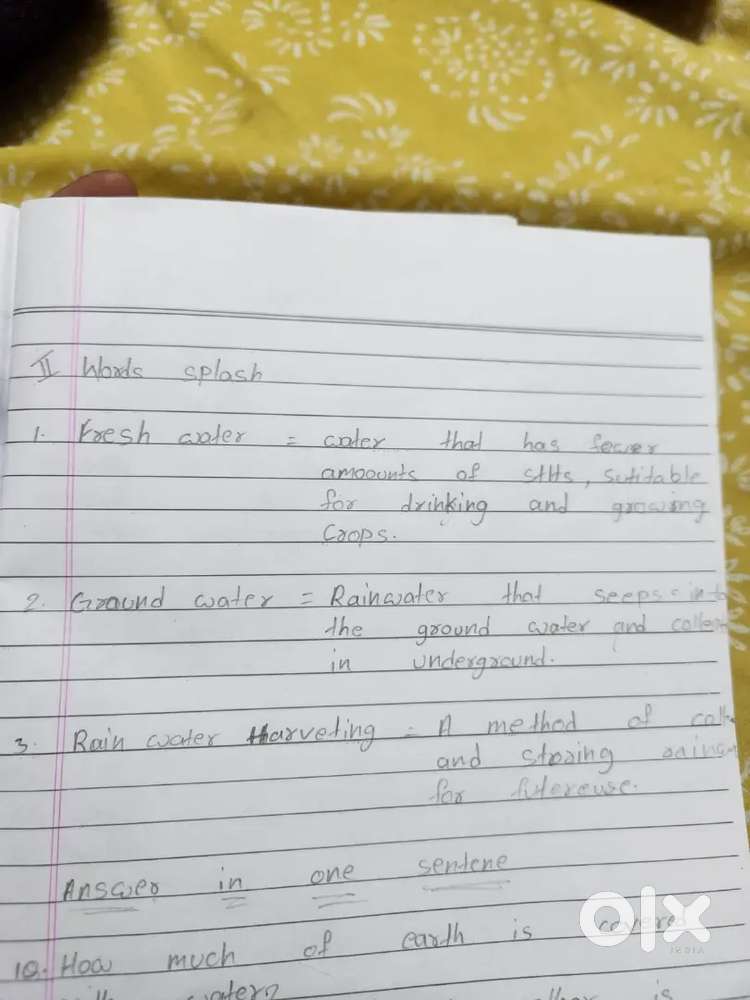 II Words splash
1. Fresh water = water that has fewer
amoounts of sltts, sutitable
for drinking and growing
Crops.
2. Ground water = Rainwater that seeps into
the ground water and collect
in underground.
3. Rain water Harveting = A method of colle
and storing rainwa
for futereuse.
Answer in one sentene
1Q. How much of earth is covered
water?
is
olx
INDIA